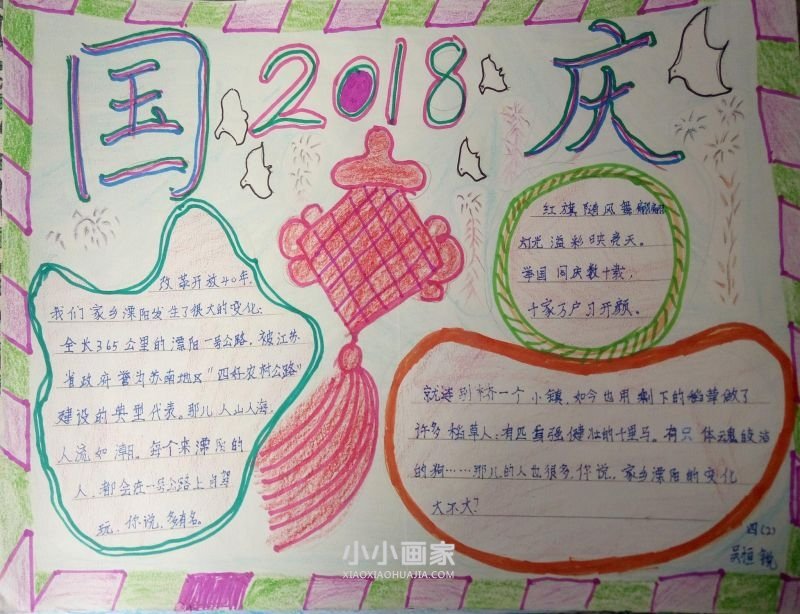 国 2018 庆
改革开放40年,
我们家乡溧阳发生了很大的变化:
全长365公里的溧阳一号公路,被江苏
省政府誉为苏南地区"四好农村公路"
建设的典型代表。那儿人山人海,
人流如潮。每个来溧阳的
人,都会在一号公路上自驾
玩,你说,多有名。
红旗随风舞翩翩
灯光溢彩映亮天。
举国同庆数十载,
十家万户习开颜。
就连别桥一个小镇,如今也用剩下的稻草做了
许多稻草人:有匹看强健壮的千里马。有只体
的狗……那儿的人也很多,你说,家乡溧阳的变化
大不大?
四(2)
吴恒锐
小小画家
XIAOXIAOHUAJIA.COM